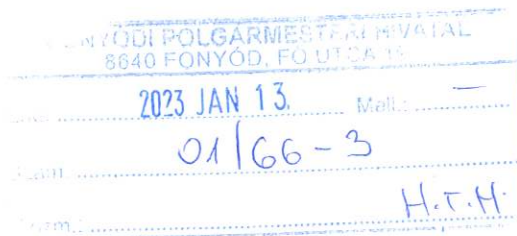 POLGÁRMESTERI HIVATAL
8640 FONYÓD, FŐ UTCA
2023 JAN 13. Mell.: —
01/66-3
H.T.M.